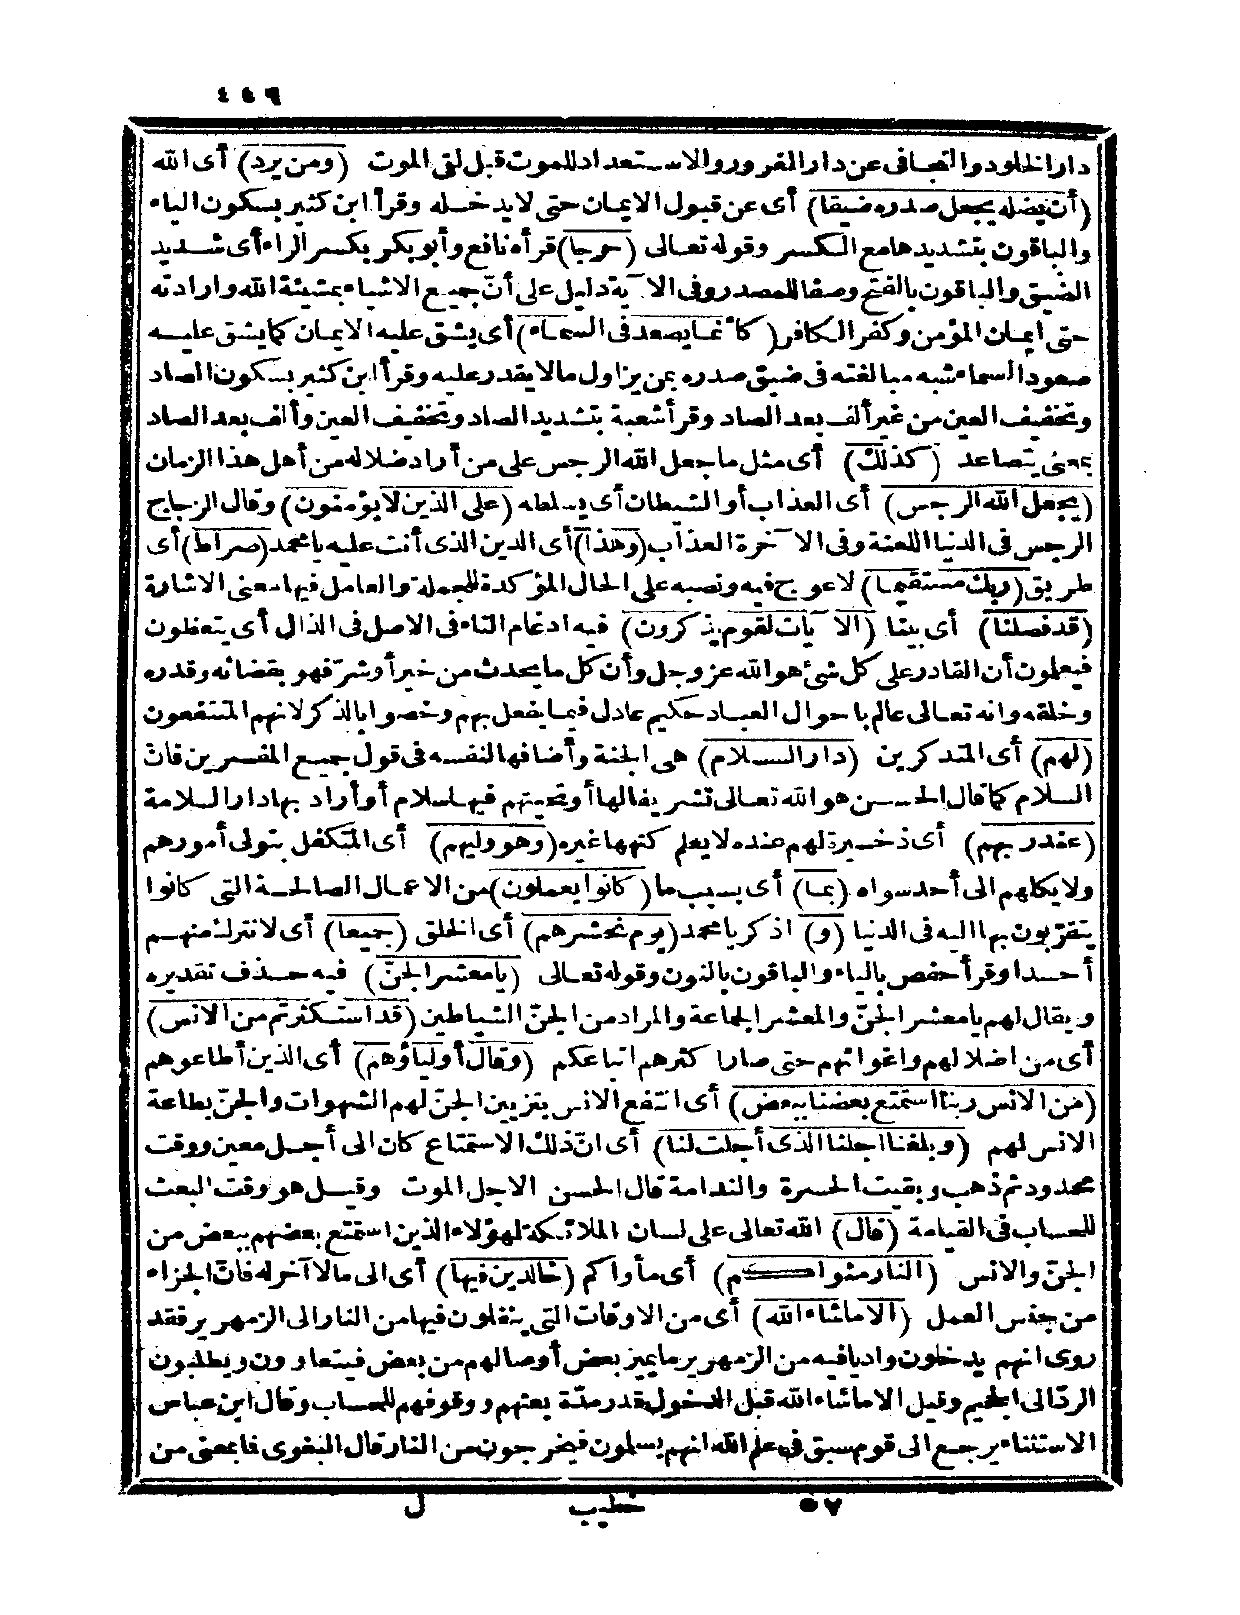 ٤٤٩
دار الخلود والتجافى عن دار الغرور والاستعداد للموت قبل لقى الموت (ومن يرد) أى الله
(أن يضله يجعل صدره ضيقا) أى عن قبول الايمان حتى لا يدخله وقرأ ابن كثير بسكون الياء
والباقون بتشديدها مع الكسر وقوله تعالى (حرجا) قرأه نافع وأبو بكر بكسر الراء أى شديد
الضيق والباقون بالفتح وصفا للمصدر وفى الآية دليل على أنّ جميع الاشياء بمشيئة الله وارادته
حتى ايمان المؤمن وكفر الكافر (كأنما يصعد فى السماء) أى يشق عليه الايمان كما يشق عليه
صعود السماء شبه مبالغته فى ضيق صدره بمن يزاول ما لا يقدر عليه وقرأ ابن كثير بسكون الصاد
وتخفيف العين من غير ألف بعد الصاد وقرأ شعبة بتشديد الصاد وتخفيف العين وألف بعد الصاد
بمعنى يتصاعد (كذلك) أى مثل ما جعل الله الرجس على من أراد ضلاله من أهل هذا الزمان
(يجعل الله الرجس) أى العذاب أو الشيطان أى يسلطه (على الذين لا يؤمنون) وقال الزجاج
الرجس فى الدنيا اللعنة وفى الآخرة العذاب (وهذا) أى الدين الذى أنت عليه يا محمد (صراط) أى
طريق (ربك مستقيما) لا عوج فيه ونصبه على الحال المؤكدة للجملة والعامل فيها معنى الاشارة
(قد فصلنا) أى بينا (الآيات لقوم يذكرون) فيه ادغام التاء فى الاصل فى الذال أى يتعظون
فيعلمون أن القادر على كل شئ هو الله عز وجل وأن كل ما يحدث من خير أو شرّ فهو بقضائه وقدره
وخلقه وانه تعالى عالم باحوال العباد حكيم عادل فيما يفعل بهم وخصوا بالذكر لانهم المنتفعون
(لهم) أى المتذكرين (دار السلام) هى الجنة وأضافها لنفسه فى قول جميع المفسرين فانّ
السلام كما قال الحسن هو الله تعالى تشريفا لها أو تحيتهم فيها سلام أو أراد بها دار السلامة
(عند ربهم) أى ذخيرة لهم عنده لا يعلم كنهها غيره (وهو وليهم) أى المتكفل بتولى أمورهم
ولا يكلهم الى أحد سواه (بما) أى بسبب ما (كانوا يعملون) من الاعمال الصالحة التى كانوا
يتقرّبون بها اليه فى الدنيا (و) اذكر يا محمد (يوم نحشرهم) أى الخلق (جميعا) أى لا نترك منهم
أحدا وقرأ حفص بالياء والباقون بالنون وقوله تعالى (يا معشر الجنّ) فيه حذف تقديره
ويقال لهم يا معشر الجنّ والمعشر الجماعة والمراد من الجنّ الشياطين (قد استكثرتم من الانس)
أى من اضلالهم واغوائهم حتى صارا كثرهم اتباعكم (وقال أولياؤهم) أى الذين أطاعوهم
(من الانس ربنا استمتع بعضنا ببعض) أى انتفع الانس بتزيين الجنّ لهم الشهوات والجنّ بطاعة
الانس لهم (وبلغنا اجلنا الذى أجلت لنا) أى انّ ذلك الاستمتاع كان الى أجل معين ووقت
محدود ثم ذهب وبقيت الحسرة والندامة قال الحسن الاجل الموت وقيل هو وقت البعث
للحساب فى القيامة (قال) الله تعالى على لسان الملائكة لهؤلاء الذين استمتع بعضهم ببعض من
الجنّ والانس (النار مثواكم) أى مأواكم (خالدين فيها) أى الى ما لا آخر له فانّ الجزاء
من جنس العمل (الا ما شاء الله) أى من الاوقات التى ينقلون فيها من النار الى الزمهرير فقد
روى انهم يدخلون واديا فيه من الزمهرير ما يميز بعض أوصالهم من بعض فيتعاوون ويطلبون
الردّ الى الجحيم وقيل الا ما شاء الله قبل الدخول بقدر مدّة بعثهم ووقوفهم للحساب وقال ابن عباس
الاستثناء يرجع الى قوم سبق فى علم الله انهم يسلمون فيخرجون من النار قال البغوى فما بمعنى من
٥٧ خطيب ل